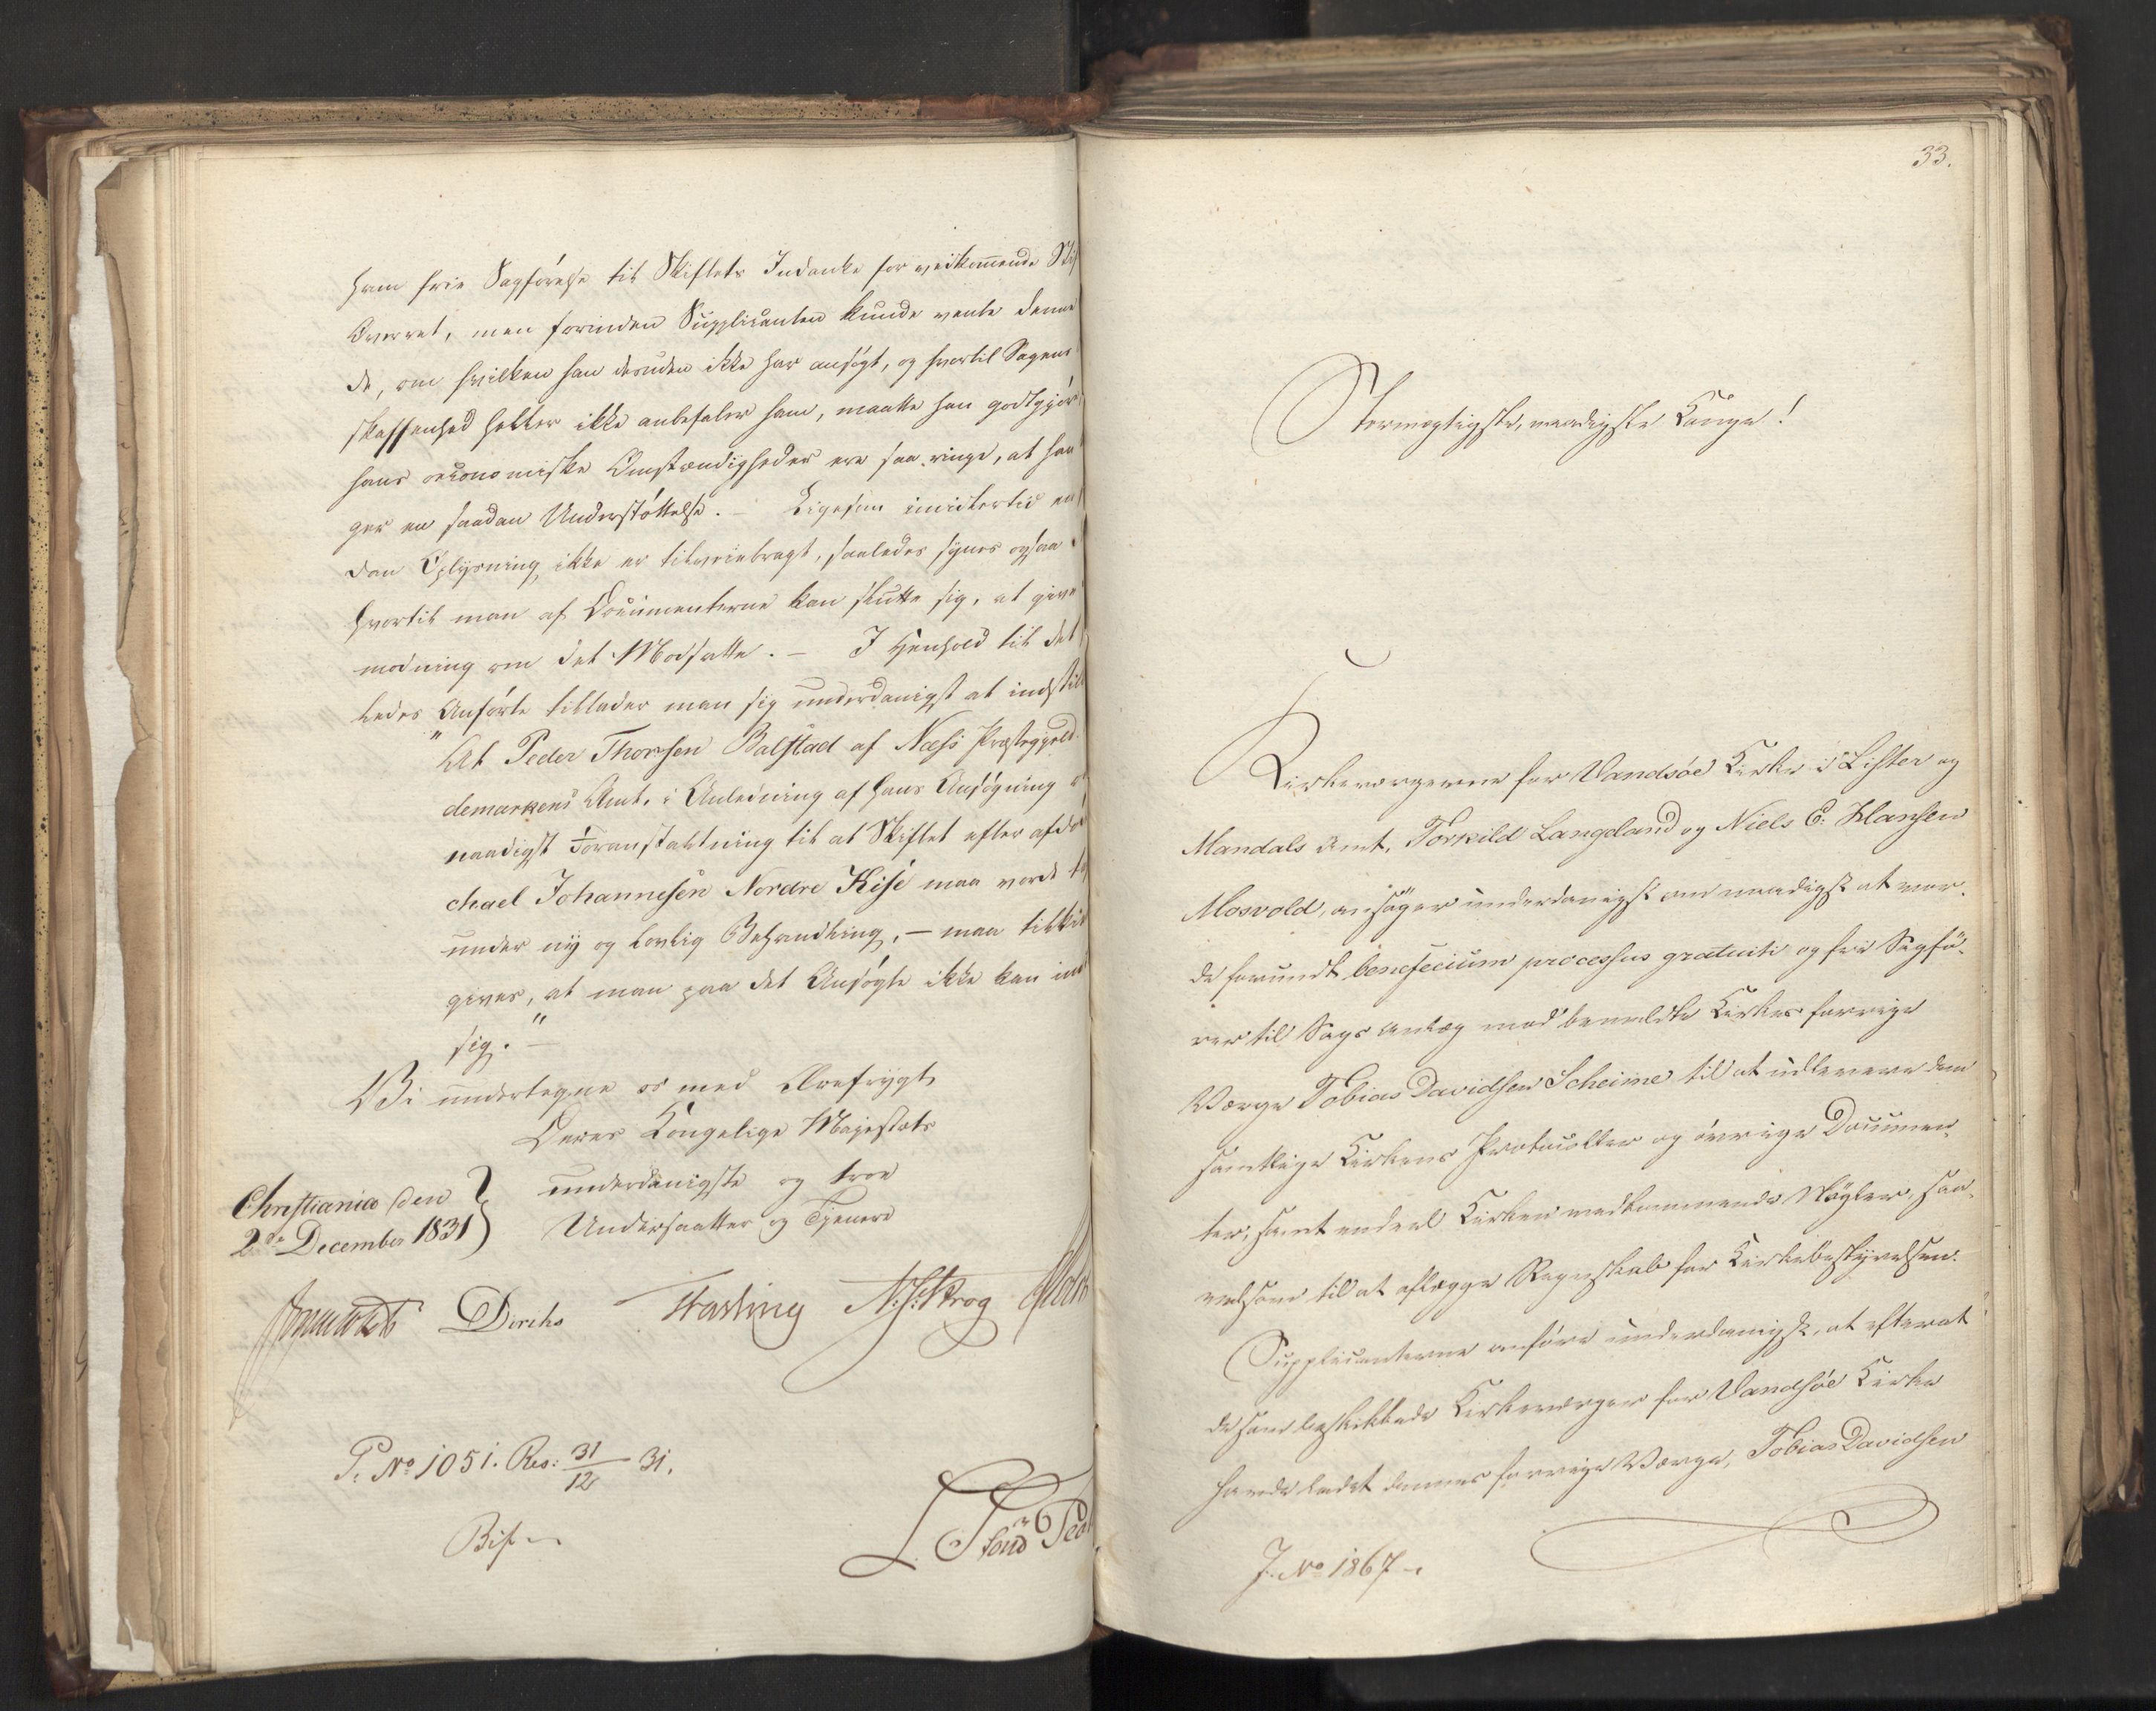 ham frie Sagførelse til Skiftets Indanke for vedkommende Stif
Overret, men forinden Supplicanten kunde vente denne
de, om hvilken han desuden ikke har ansøgt, og hvortil Sagens
skaffenhed heller ikke anbefaler ham, maatte han godtgjør
hans oeconomiske Omstændigheder ere saa ringe, at han
ger en saadan Understøttelse. – Ligesom imidlertid en
dan Oplysning ikke er tilveiebragt, saaledes synes ogsaa
hvortil man af Documenterne kan slutte sig, at give
modning om det Modsatte. – I Henhold til det
ledes Anførte tillader man sig underdanigst at indstill
"At Peder Thorsen Balstad af Næss Præstegjeld
demarkens Amt, i Anledning af hans Ansøgning o
naadigst Foranstaltning til at Skiftet efter afdø
chael Johannesen Nordre Kise maa vorde ta
under ny og lovlig Behandling, – maa tilkje
gives, at man paa det Ansøgte ikke kan ind
sig." –
Vi undertegne os med Ærefrygt
Deres Kongelige Majestæts
underdanigste og troe
Undersaatter og Tjenere
Christiania den
2de December 1831
Diriks
N. J. Krog
P. No 1051. Res: 31/12 31.
33.
Stormægtigste, naadigste Konge!
Kirkeværgerne for Vandsøe Kirke i Lister og
Mandals Amt, Torkild Langeland og Niels E. Hansen
Mosvold, ansøger underdanigst om naadigst at vor-
de forundt beneficium processus gratuiti og fri Sagfø-
rer til Sags Anlæg mod bemeldte Kirkes forrige
Værge Tobias Davidsen Scheime til at udlevere dem
samtlige Kirkens Protocoller og øvrige Documen-
ter, samt endeel Kirken vedkommende Nøgler, saa-
velsom til at aflægge Regnskab for Kirkebestyrelsen.
Supplicanterne anføre underdanigst, at efterat
de som beskikkede Kirkeværger for Vandsøe Kirke
havde ladet dennes forrige Værge, Tobias Davidsen
J. No 1867 –